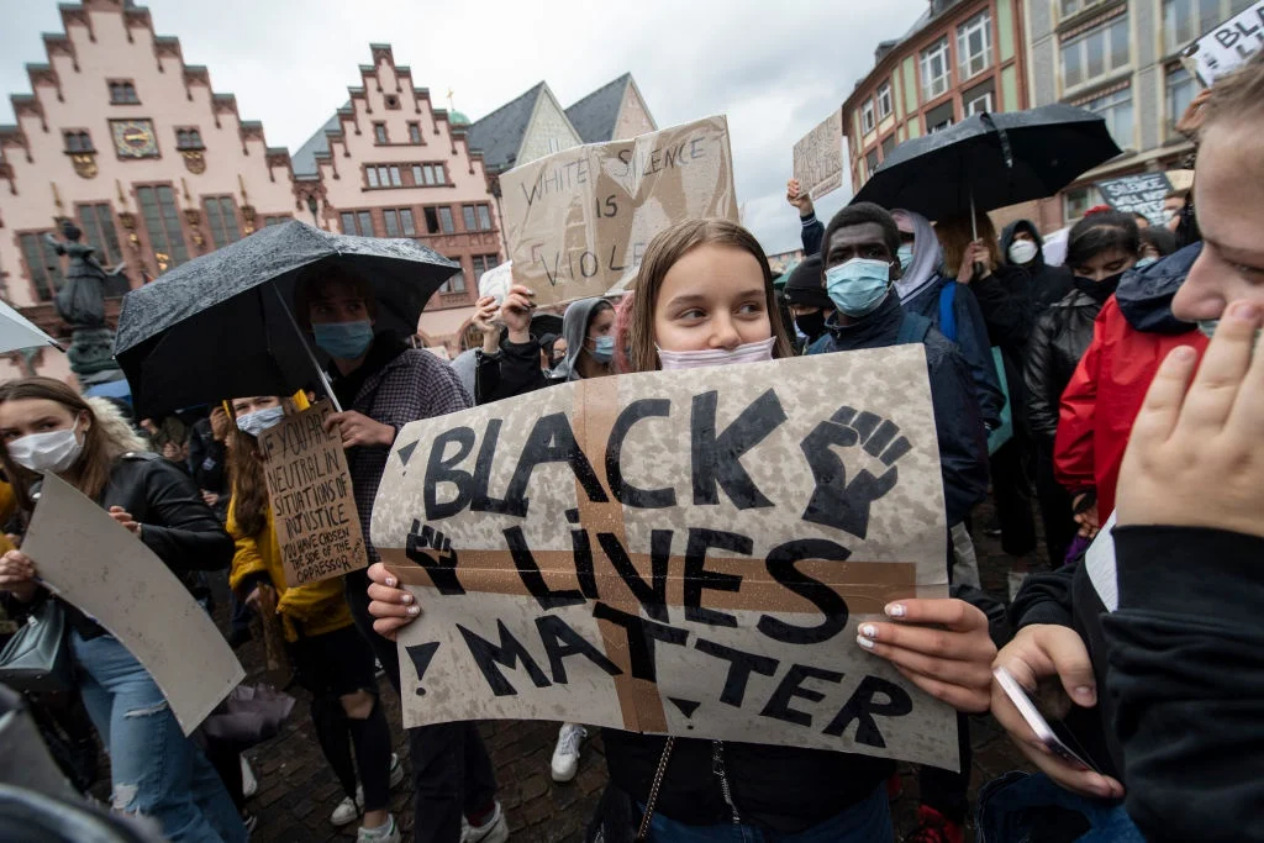 WHITE SILENCE
IS
VIOLE
BL
LI
SILENCE
WILL NOT
IF YOU ARE
NEUTRAL IN
SITUATIONS OF
INJUSTICE
YOU HAVE CHOSEN
THE SIDE OF THE
OPPRESSOR
BLACK
LiVES
MATTER